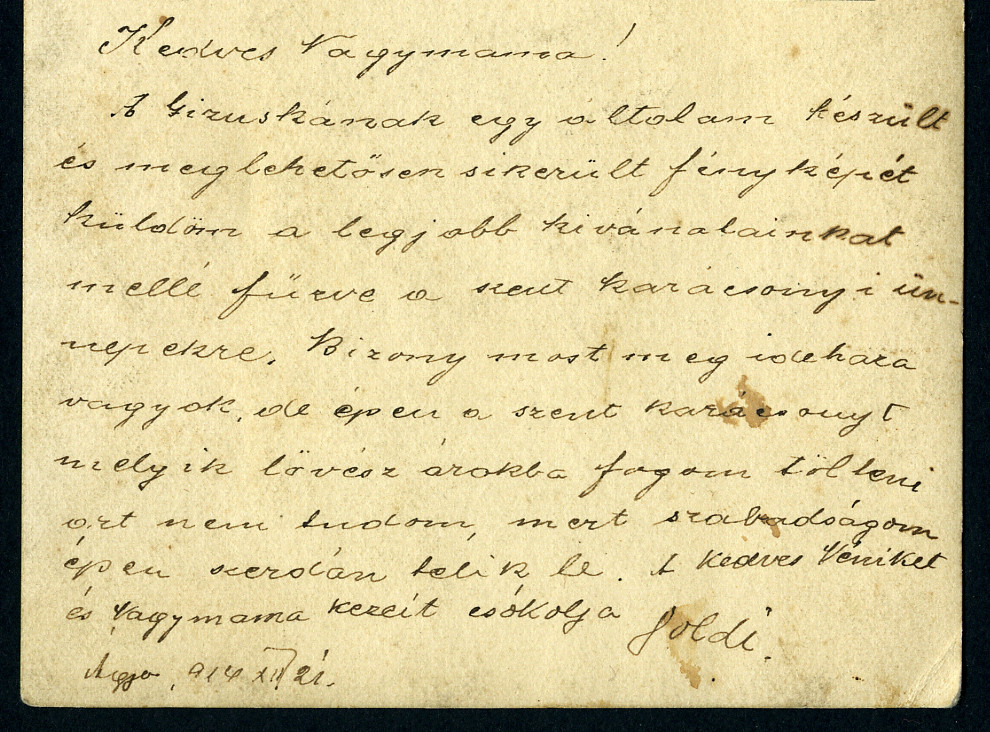 Kedves Nagymama!
A Gizuskának egy áltolam készült
és meglehetősen sikerült fényképét
küldöm a legjobb kivánalainkat
mellé fűzve a szent karácsonyi ün-
nepekre. Bizony most meg idehaza
vagyok, de épen a szent karácsonyt
melyik lövész árokba fogom tölteni
azt nem tudom, mert szabadságom
épen szerdán telik le. A kedves Néniket
és Nagymama kezeit csókolja
914 XII/21.